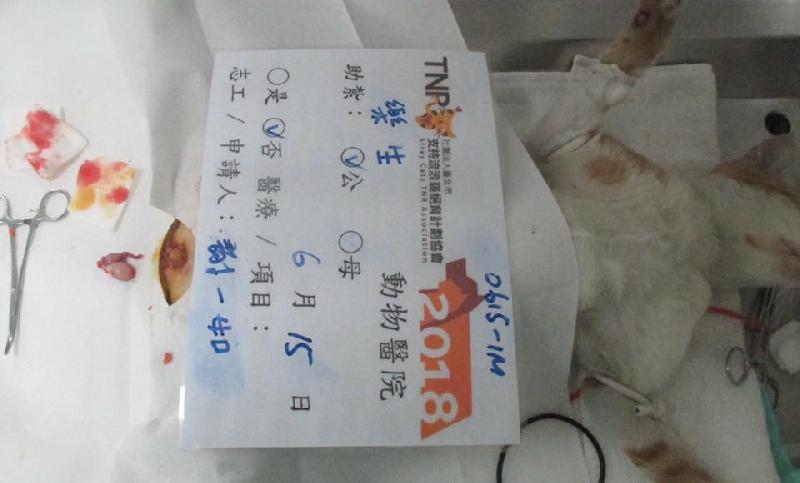 0615-1M
TNR
社團法人臺北市
支持流浪貓絕育計劃協會
Stray Cats TNR Association
2018
樂生 動物醫院
助紮：公 母
6月15日
是 否 醫療/項目：
志工/申請人：